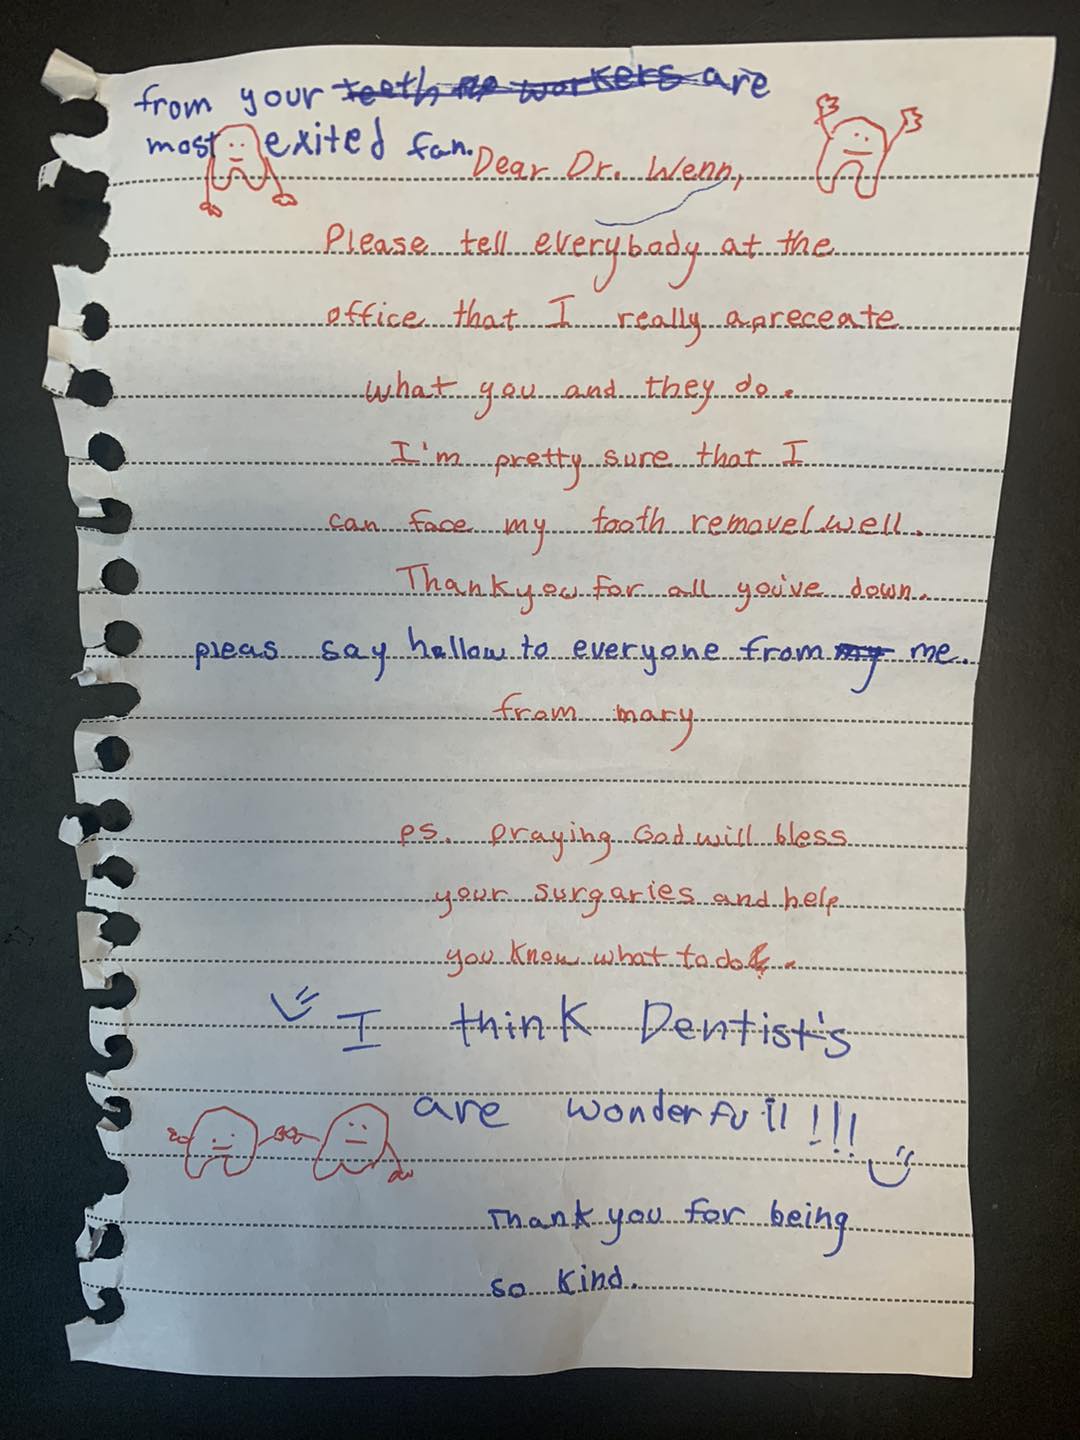 from your teeth workers are
most exited fan.
Dear Dr. Wenn,
Please tell everybody at the
office that I really apreceate
what you and they do.
I'm pretty sure that I
can face my tooth removel well.
Thank you for all you've down.
pleas say hallow to everyone from my me.
from mary
ps. praying God will bless
your surgaries and help
you know what to do.
I think Dentist's
are wonderfull!!!
Thank you for being
so kind.